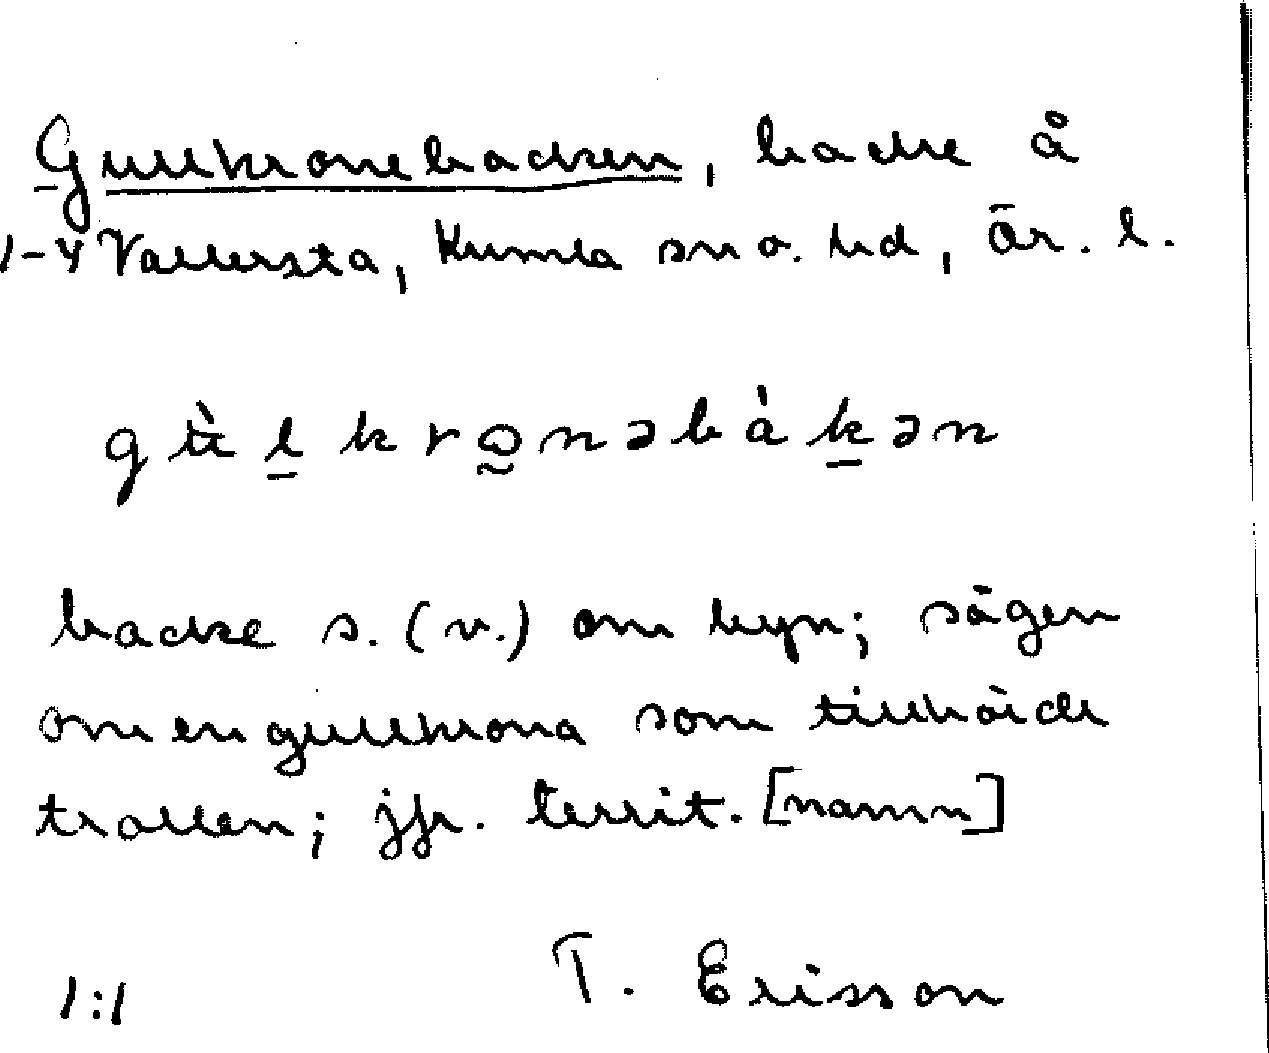 Gullkronebacken, backe å
1-4 Vallersta, Kumla sn o. hd, Är. l.
gù̵l̲kro̰nəbàk̲ən
backe s. (v.) om byn; sägen
om en gullkrona som tillhörde
trollen; jfr. territ. [namn]
1:1 T. Ericsson